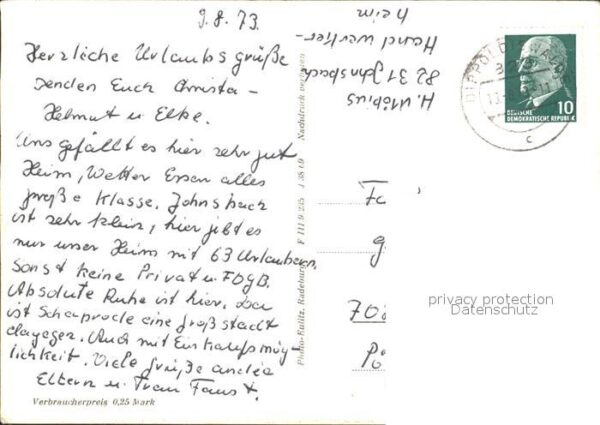 9.8.73
Herzliche Urlaubsgrüße
senden Euch Christa -
Helmut u Elke.
Uns gefällt es hier sehr gut
Heim, Wetter Essen alles
große Klasse. Johnsbach
ist sehr klein, hier gibt es
nur unser Heim mit 63 Urlaubern,
sonst keine Privat u. FDGB.
Absolute Ruhe ist hier. Da
ist Schaprode eine großstadt
dagegen. Auch mit Einkaufsmög-
lichkeit. Viele grüße an
Eltern u. Frau Faust.
Verbraucherpreis 0,25 Mark
Photo-Eulitz, Radeburg F 111 9 235 J 38/69 Nachdruck verboten
H. Möbius
82 31 Johnsbach
Handwerker-
heim
DEUTSCHE
DEMOKRATISCHE REPUBLIK
10
c
Fa
g
708
Pö
privacy protection
Datenschutz